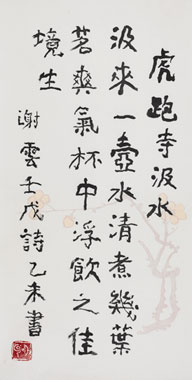 虎跑寺汲水
汲來一壺水清煮幾葉
茗爽氣杯中浮飲之佳
境生
謝雲壬戌詩乙未書